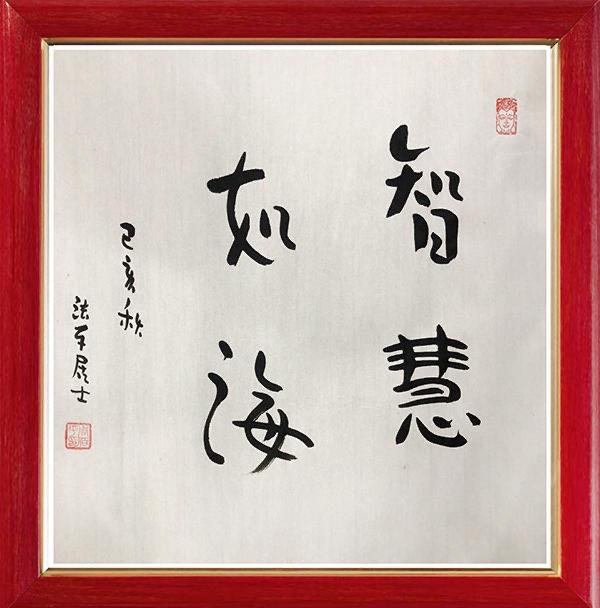 智慧
如海
己亥秋
法平居士